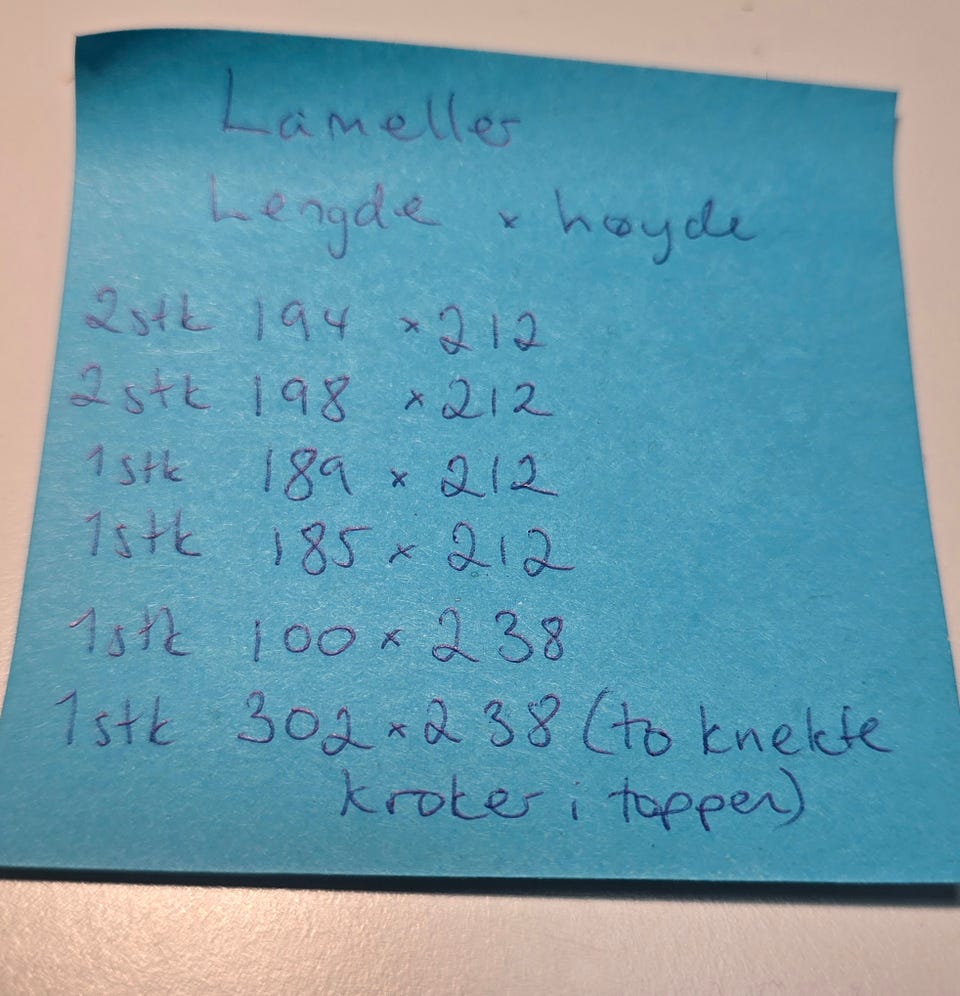 Lameller
Lengde x høyde
2stk 194 x 212
2stk 198 x 212
1stk 189 x 212
1stk 185 x 212
1stk 100 x 238
1stk 302 x 238 (to knekte
kroker i toppen)